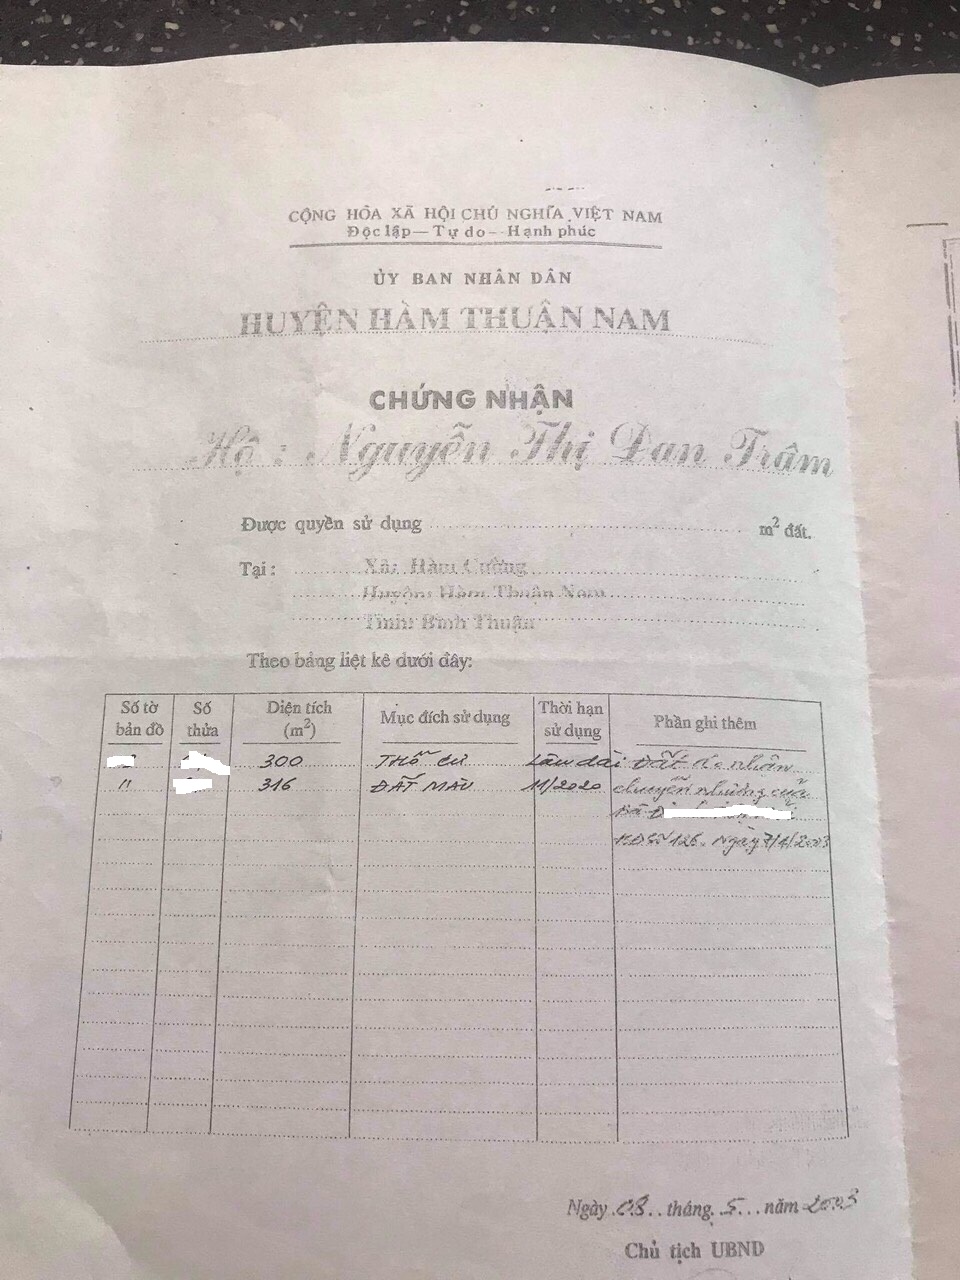 CỘNG HÒA XÃ HỘI CHỦ NGHĨA VIỆT NAM
Độc lập — Tự do — Hạnh phúc
ỦY BAN NHÂN DÂN
HUYỆN HÀM THUẬN NAM
CHỨNG NHẬN
Hộ : Nguyễn Thị Đan Trâm
Được quyền sử dụng m² đất.
Tại : Xã: Hàm Cường
Huyện: Hàm Thuận Nam
Tỉnh: Bình Thuận
Theo bảng liệt kê dưới đây:
Số tờ bản đồ Số thửa Diện tích (m²) Mục đích sử dụng Thời hạn sử dụng Phần ghi thêm
300 THỔ CƯ Lâu dài Đất do nhận
" 316 ĐẤT MÀU 11/2020 chuyển nhượng của
Bà
HĐ Số 126. Ngày 7/4/2003
Ngày 08 tháng 5 năm 2003
Chủ tịch UBND